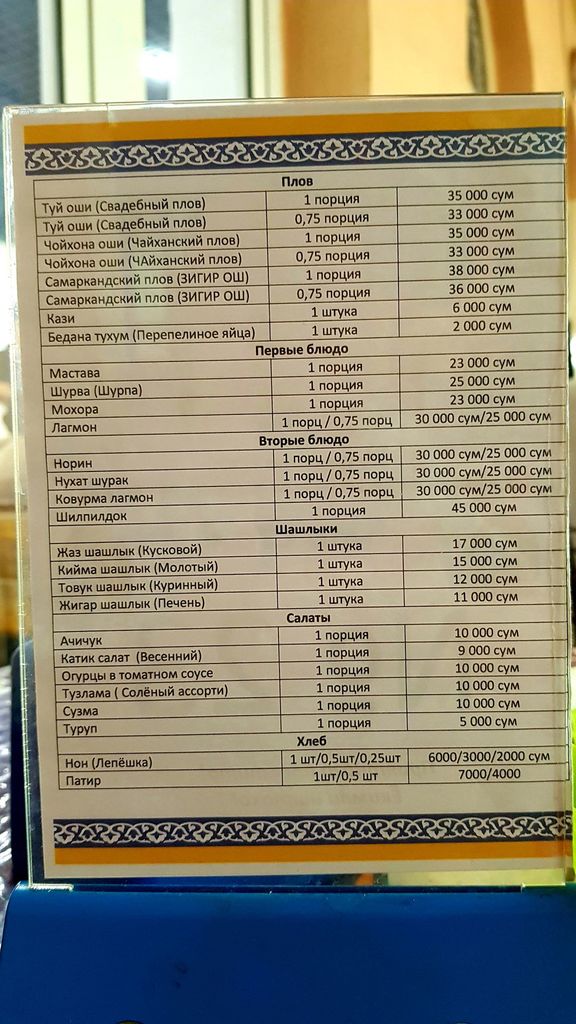 Плов
Туй оши (Свадебный плов) 1 порция 35 000 сум
Туй оши (Свадебный плов) 0,75 порция 33 000 сум
Чойхона оши (Чайханский плов) 1 порция 35 000 сум
Чойхона оши (ЧАйханский плов) 0,75 порция 33 000 сум
Самаркандский плов (ЗИГИР ОШ) 1 порция 38 000 сум
Самаркандский плов (ЗИГИР ОШ) 0,75 порция 36 000 сум
Кази 1 штука 6 000 сум
Бедана тухум (Перепелиное яйца) 1 штука 2 000 сум
Первые блюдо
Мастава 1 порция 23 000 сум
Шурва (Шурпа) 1 порция 25 000 сум
Мохора 1 порция 23 000 сум
Лагмон 1 порц / 0,75 порц 30 000 сум/25 000 сум
Вторые блюдо
Норин 1 порц / 0,75 порц 30 000 сум/25 000 сум
Нухат шурак 1 порц / 0,75 порц 30 000 сум/25 000 сум
Ковурма лагмон 1 порц / 0,75 порц 30 000 сум/25 000 сум
Шилпилдок 1 порция 45 000 сум
Шашлыки
Жаз шашлык (Кусковой) 1 штука 17 000 сум
Кийма шашлык (Молотый) 1 штука 15 000 сум
Товук шашлык (Куринный) 1 штука 12 000 сум
Жигар шашлык (Печень) 1 штука 11 000 сум
Салаты
Ачичук 1 порция 10 000 сум
Катик салат (Весенний) 1 порция 9 000 сум
Огурцы в томатном соусе 1 порция 10 000 сум
Тузлама ( Солёный ассорти) 1 порция 10 000 сум
Сузма 1 порция 10 000 сум
Туруп 1 порция 5 000 сум
Хлеб
Нон (Лепёшка) 1 шт/0,5шт/0,25шт 6000/3000/2000 сум
Патир 1шт/0,5 шт 7000/4000